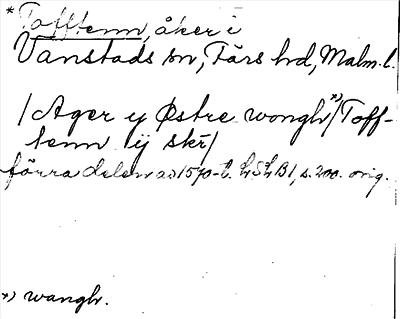 * Tofftenn, åker i
Vanstads sn, Färs hd, Malm. l.
/Ager y Østre wongh *)/Toff-
tenn ij skr/
förra delen av 1570-t. LSLB1, s. 200. orig.
*) wangh.